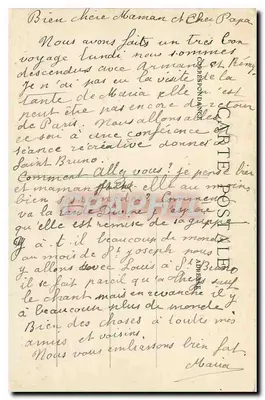 Bien chère Maman et Cher Papa
Nous avons faits un très bon
voyage lundi nous sommes
descendus avec Armand et Rémy
Je n'ai pas eu la visite de la
tante de Maria elle n'est
peut être pas encore de retour
de Paris. Nous allons ce
soir à une conférence et
séance récréative donnée
Saint Bruno.
Comment Allez vous? je pense bien
et maman elle au moins
bien
va la
qu'elle est remise de sa grippe
y a t il beaucoup de monde
au mois de St joseph nous
y allons avec Louis à St Bruno
il se fait pareil qu'a
le chant mais en revanche il y
à beaucoup plus de monde
Bien des choses à toutes mes
amies et voisins
Nous vous embrassons bien fort
Maria
CARTE POSTALE
CORRESPONDANCE
ADRESSE